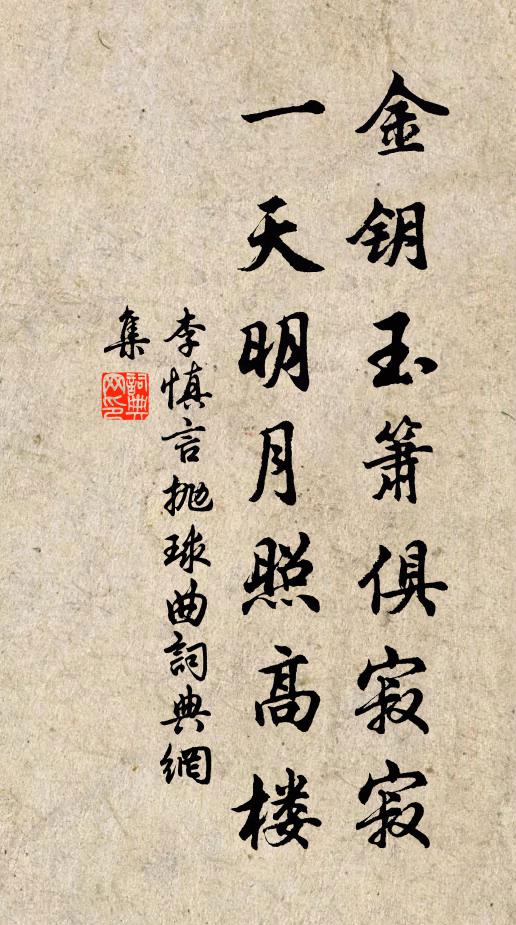 金钥玉箫俱寂寂
一天明月照高楼
李慎言抛球曲詞典網
集
詞典
网印